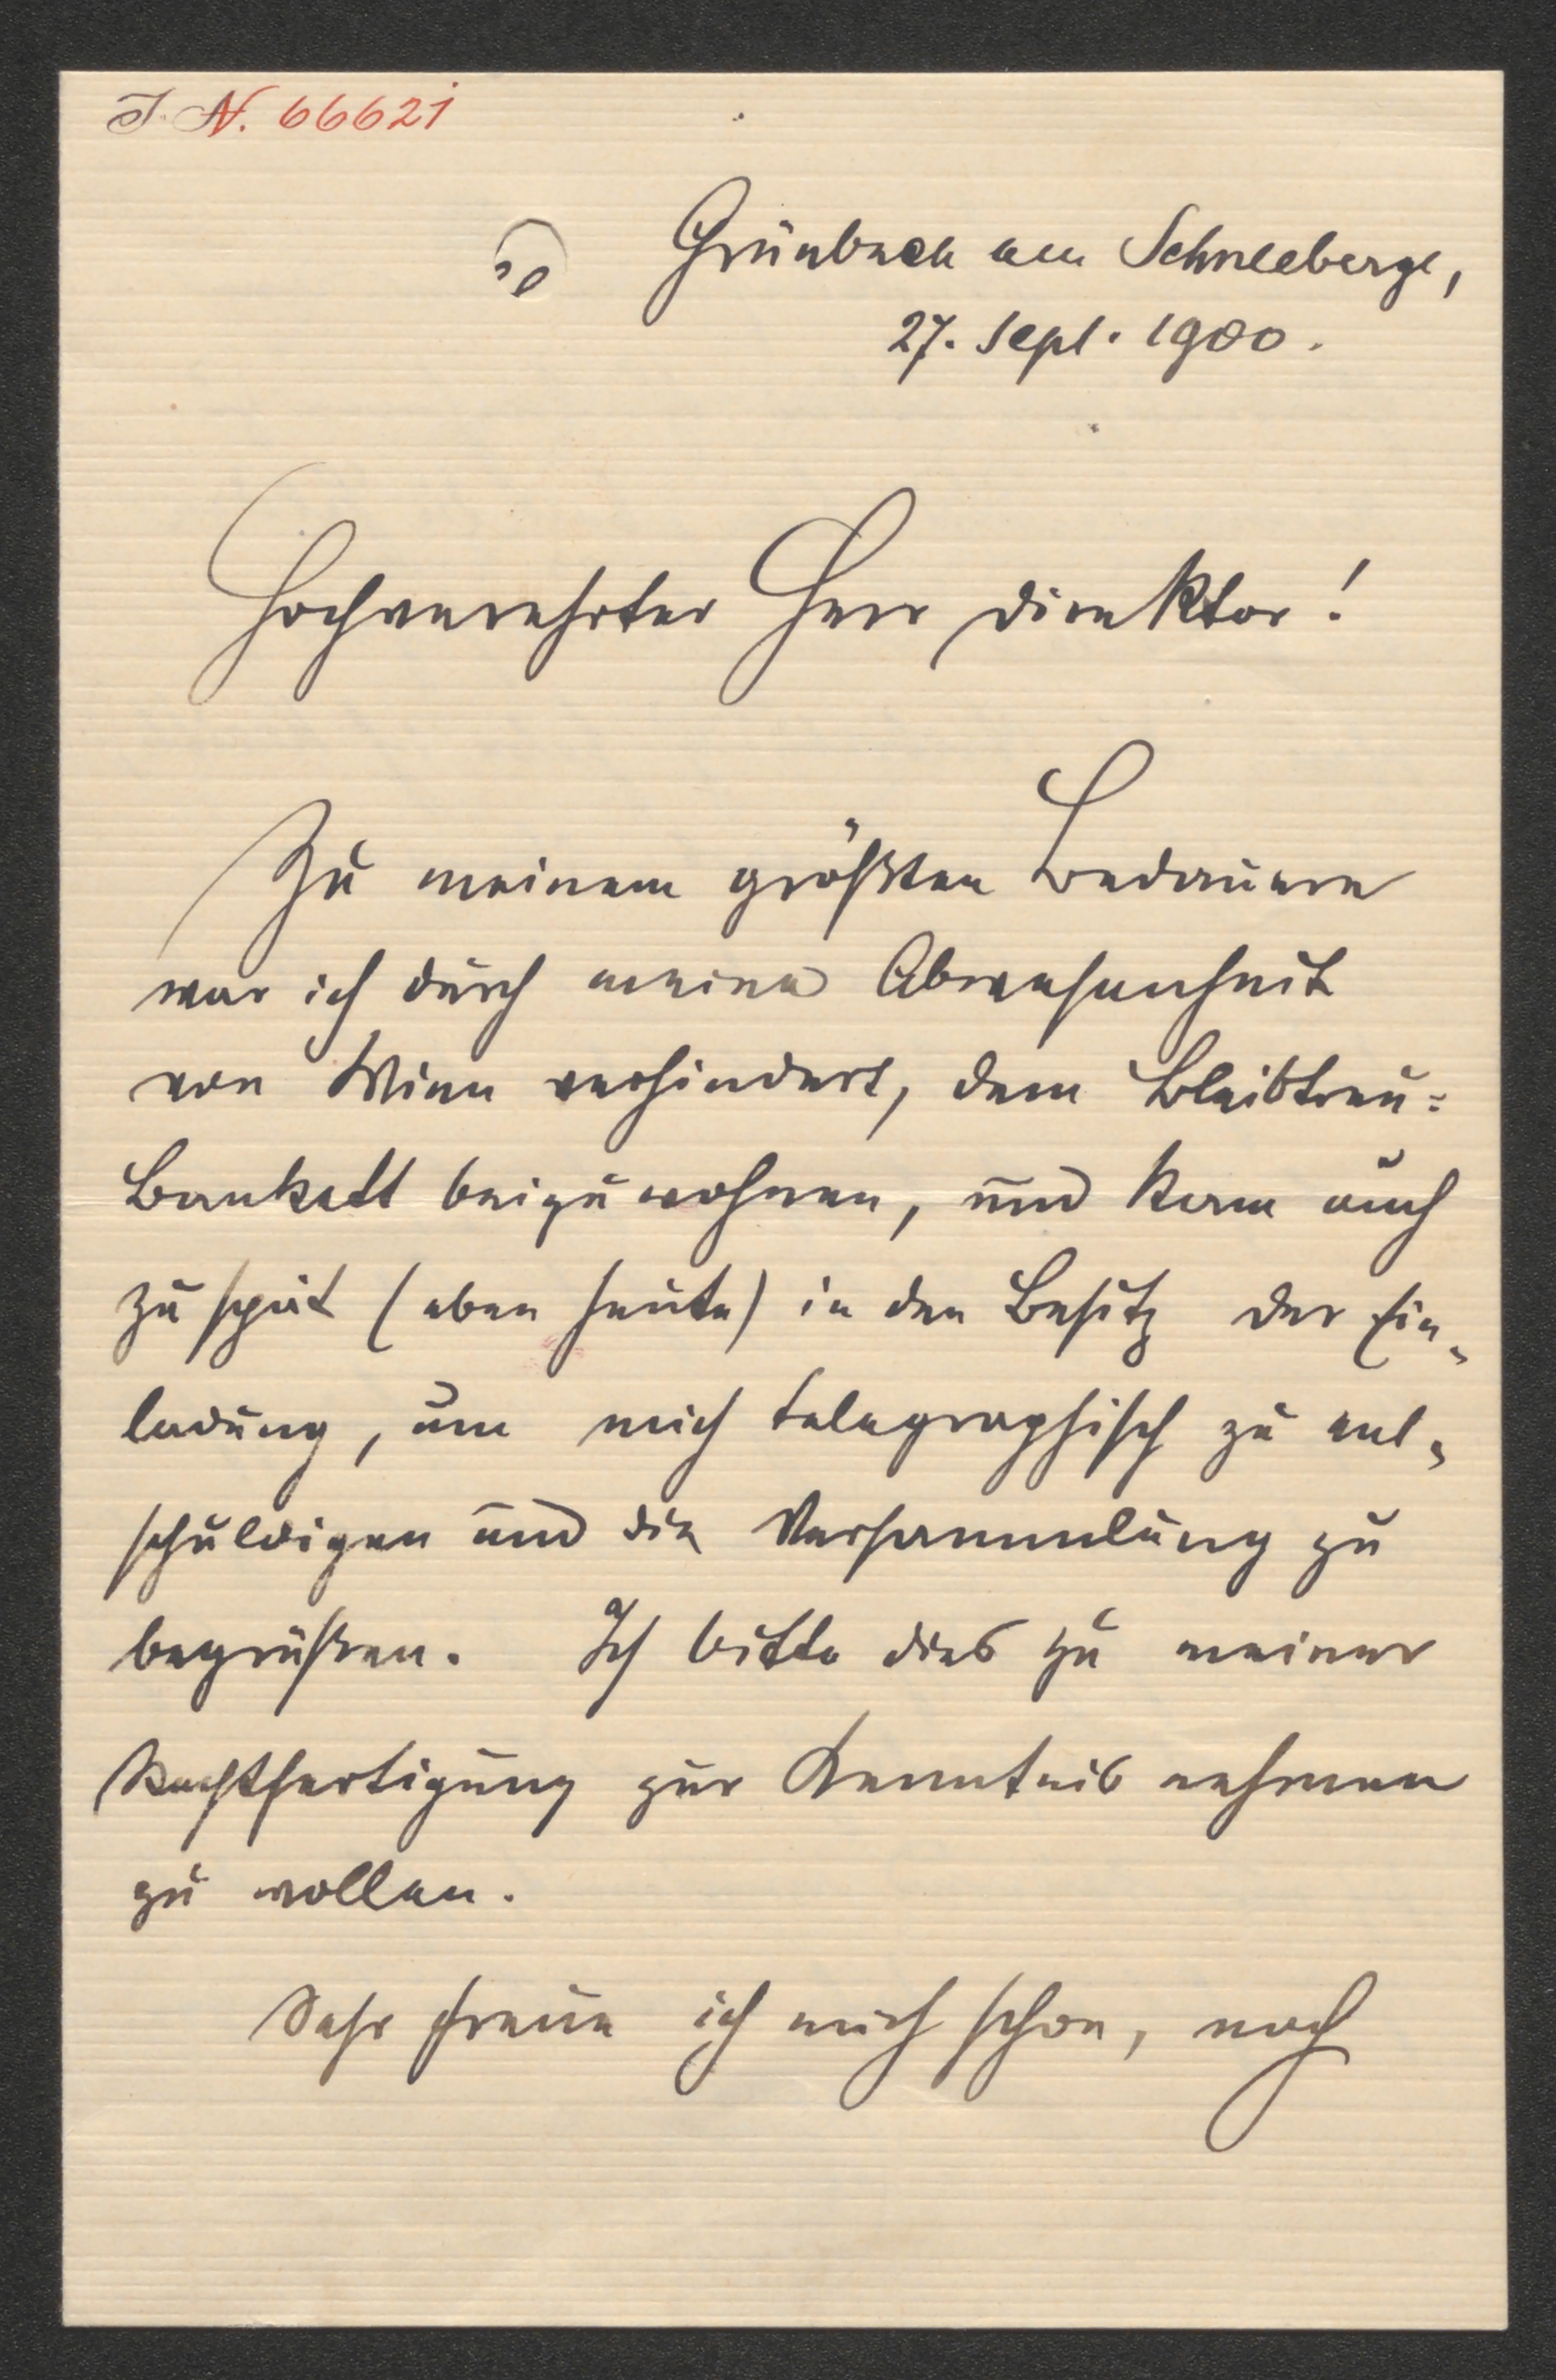 I. N. 66621
Grünbach am Schneeberge,
27. Sept. 1900.
Hochverehrter Herr Direktor!
Zu meinem größten Bedauern
war ich durch meine Abwesenheit
von Wien verhindert, dem Bleibtreu=
Bankett beizuwohnen, und kam auch
zu spät (eben heute) in den Besitz der Ein-
ladung, um mich telegraphisch zu ent-
schuldigen und die Versammlung zu
begrüßen. Ich bitte dies zu meiner
Rechtfertigung zur Kenntnis nehmen
zu wollen.
Sehr freue ich mich schon, nach